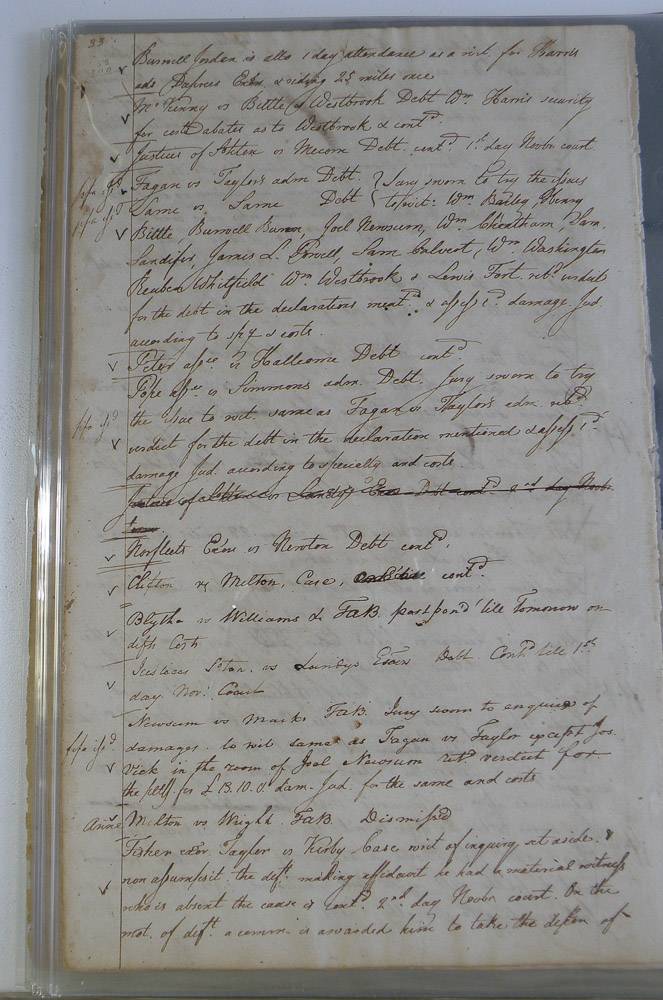 33
Burwell Jordan is allo 1 day attendance as a wit for Harris
ads Dapnes Exōr & riding 25 miles once
McKenny vs Bittle & Westbrook Debt Wm. Harris security
for costs abates as to Westbrook & contd.
Justices of vs Debt contd. 1st day Novbr court
fifa issd Fagan vs Taylors adm Debt Jury sworn to try the issues
fifa issd Same vs Same Debt to wit: Wm Bailey, Henry
Bittle, Burwell Joel Newsum, Wm. Cheatham, Sam.
Sandifer, James L. Powell, Sam Calvert, Wm Washington
Reuben Whitfield Wm. Westbrook & Lewis Fort retd. verdict
for the debt in the declarations mentd. & assess 1d. damage. Jud
according to spy & costs.
Peter assee vs Halleome Debt contd.
Pope assee vs Simmons adm. Debt. Jury sworn to try
fifa issd the issue to wit same as Fagan vs Taylors adm retd
verdict for the debt in the declaration mentioned & assess 1d.
damage Jud. according to specialty and costs.
Justices of vs Exōr Debt contd. 2nd day Novbr.
Norfleets Exōrs vs Newton Debt contd.
Clifton vs Melton, Case, contd.
Blythe vs Williams & F&B postpond till Tomorrow on
defts Costs
Justices vs Exōr Debt Contd till 1st
day Nov: Court
Newsum vs Marks F&B. Jury sworn to enquire of
fifa issd damages to wit same as Fagan vs Taylor except Jos.
Vick in the room of Joel Newsum retd verdict for
the pltf. for £13.10.0 dam. Jud. for the same and costs
Melton vs Wright F&B Dismissd
Fisher exōr Taylor vs Kirby Case writ of inquiry set aside &
non assumpsit the deft. making affidavit he had a material witness
who is absent the cause is contd. 2nd day Novbr court. On the
mot. of deft. a commn. is awarded him to take the depōn of